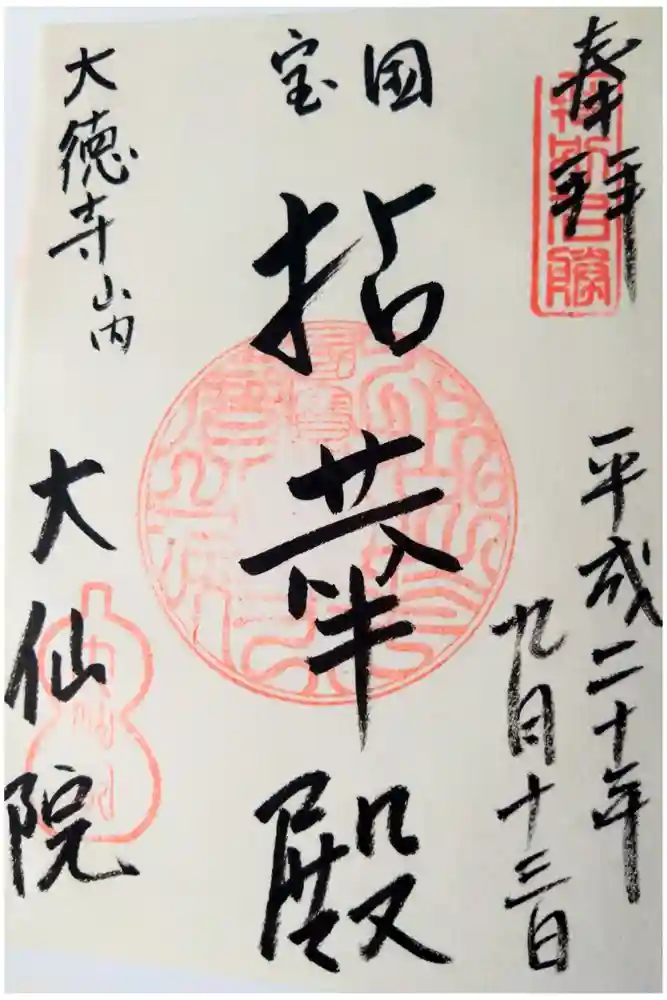 奉拝
平成二十年
九月十三日
国宝
拈華殿
大徳寺山内
大仙院